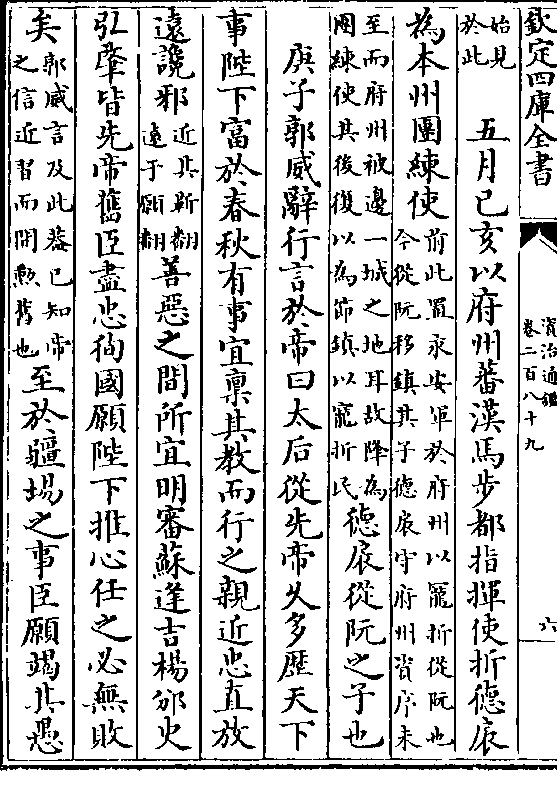 欽定四庫全書
資治通鑑
卷二百八十九
六
始見
於此
五月己亥以府州蕃漢馬步都指揮使折德扆
為本州團練使
前此置永安軍於府州以寵折從阮也
今從阮移鎮其子德扆守府州資序未
至而府州被邊一城之地耳故降為
團練使其後復以為節鎮以寵折氏
德扆從阮之子也
庚子郭威辭行言於帝曰太后從先帝久多歷天下
事陛下富於春秋有事宜禀其教而行之親近忠直放
遠讒邪
近其靳翻
遠于願翻
善惡之間所宜明審蘇逢吉楊邠史
弘肇皆先帝舊臣盡忠徇國願陛下推心任之必無敗
矣
郭威言及此葢已知帝
之信近習而間勲舊也
至於疆埸之事臣願竭其愚